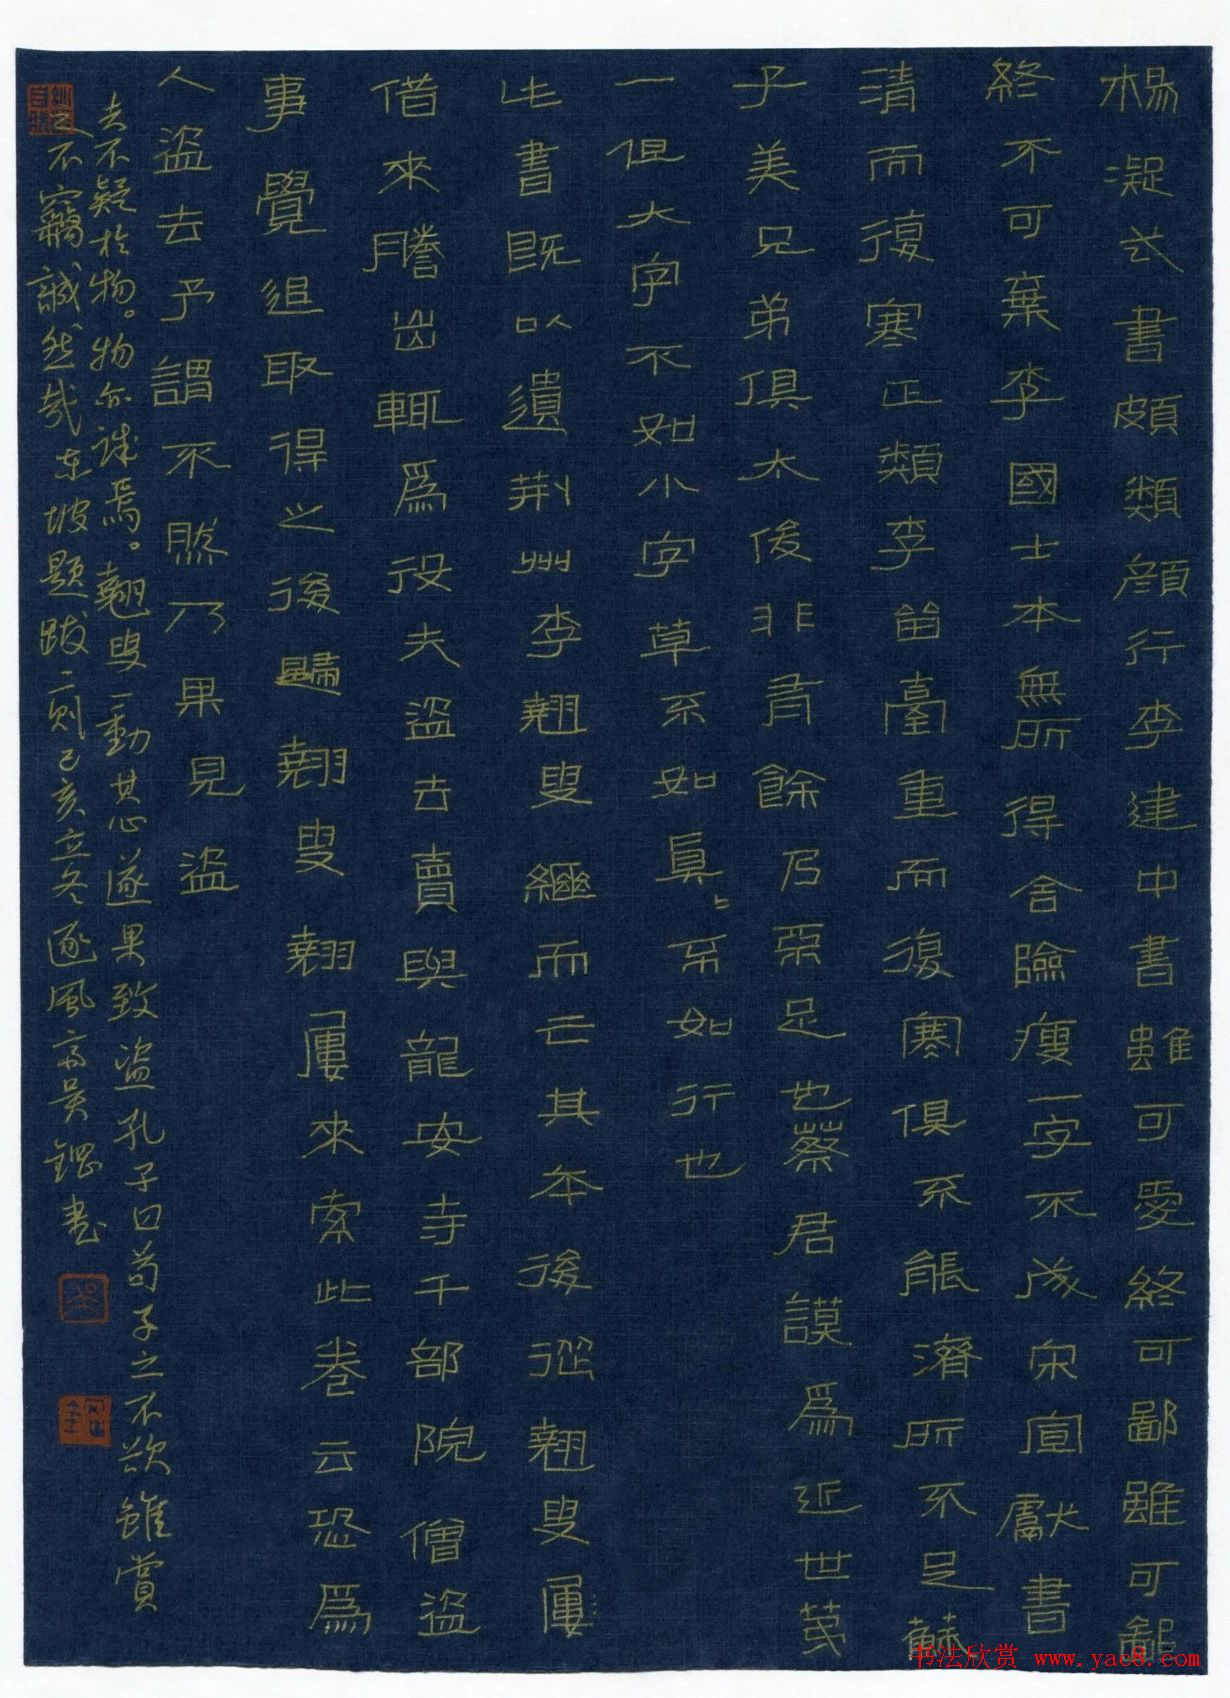 楊凝式書頗類顏行李建中書雖可愛終可鄙雖可鄙
終不可棄李國士本無所得舍險瘦一字不成宋宣獻書
清而復寒正類李留臺重而復寒俱不能濟所不足蘇
子美兄弟俱太俊非有餘乃不足也蔡君謨為近世第
一但大字不如小字草不如真真不如行也
此書既以遺荊州李翹叟繼而亡其本後從翹叟屢
借來謄出輒為役夫盜去賣與龍安寺千部院僧盜
事覺追取得之後歸翹叟翹屢來索此卷云恐為
人盜去予謂不然乃果見盜
夫不疑於物。物亦誠焉。翹叟一動其心遂果致盜孔子曰苟子之不欲雖賞
之不竊誠然哉東坡題跋二則己亥立冬逐風齋吳鍟書
书法欣赏 www.yac8.com